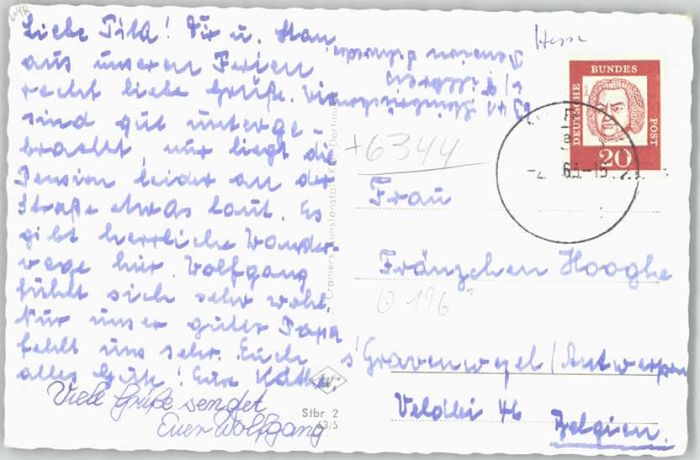 Liebe Tild! Dir u. Man
aus unseren Ferien
recht liebe Grüße. Wir
sind gut unterge-
bracht, nur liegt die
Pension leider an der
Straße etwas laut. Es
gibt herrliche Wander-
wege hier. Wolfgang
fühlt sich sehr wohl.
Nur unser guter Papa
fehlt uns sehr. Euch
alles Gute! Eure Käthe
Viele Grüße sendet
Euer Wolfgang
Pension
+6344
DEUTSCHE
BUNDES
POST
20
Frau
Fränzchen Hooghe
0 196
s'Gravenwezel/Antwerpen
Veldlei 46
Belgien.
Cramers Kunstanstalt KG, Dortmund
Stbr 2
63/5